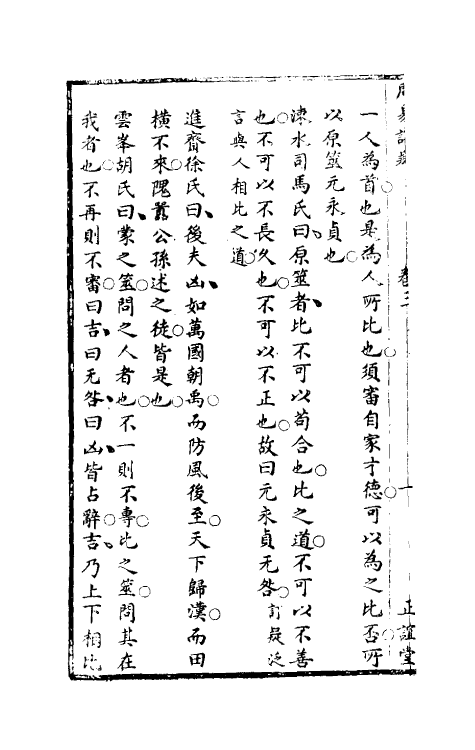 卷三 十 正誼堂
一人為首也是為人所比也須審自家才德可以為之比否所
以原筮元永貞也
涑水司馬氏曰原筮者比不可以苟合也比之道不可以不善
也不可以不長久也不可以不正也故曰元永貞无咎訂疑泛
言與人相比之道
進齋徐氏曰後夫凶如萬國朝禹而防風後至天下歸漢而田
橫不來隗囂公孫述之徒皆是也
雲峯胡氏曰蒙之筮問之人者也不一則不專比之筮問其在
我者也不再則不審曰吉曰无咎曰凶皆占辭吉乃上下相比